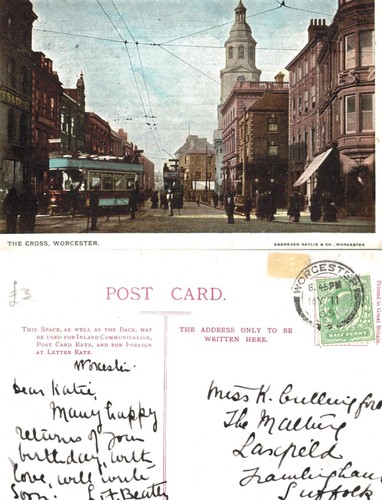 THE CROSS, WORCESTER.
EBENEZER BAYLIS & CO., WORCESTER
£3
POST CARD.
THIS SPACE, AS WELL AS THE BACK, MAY
BE USED FOR INLAND COMMUNICATION,
POST CARD RATE, AND FOR FOREIGN
AT LETTER RATE.
THE ADDRESS ONLY TO BE
WRITTEN HERE.
WORCESTER
8.45PM
11
HALF PENNY
Printed in Great Britain.
Dear Katie,
Many happy
returns of your
birthday, with
love, will write
soon.
Miss K. Cullingford
The Malting
Laxfield
Framlingham
Suffolk